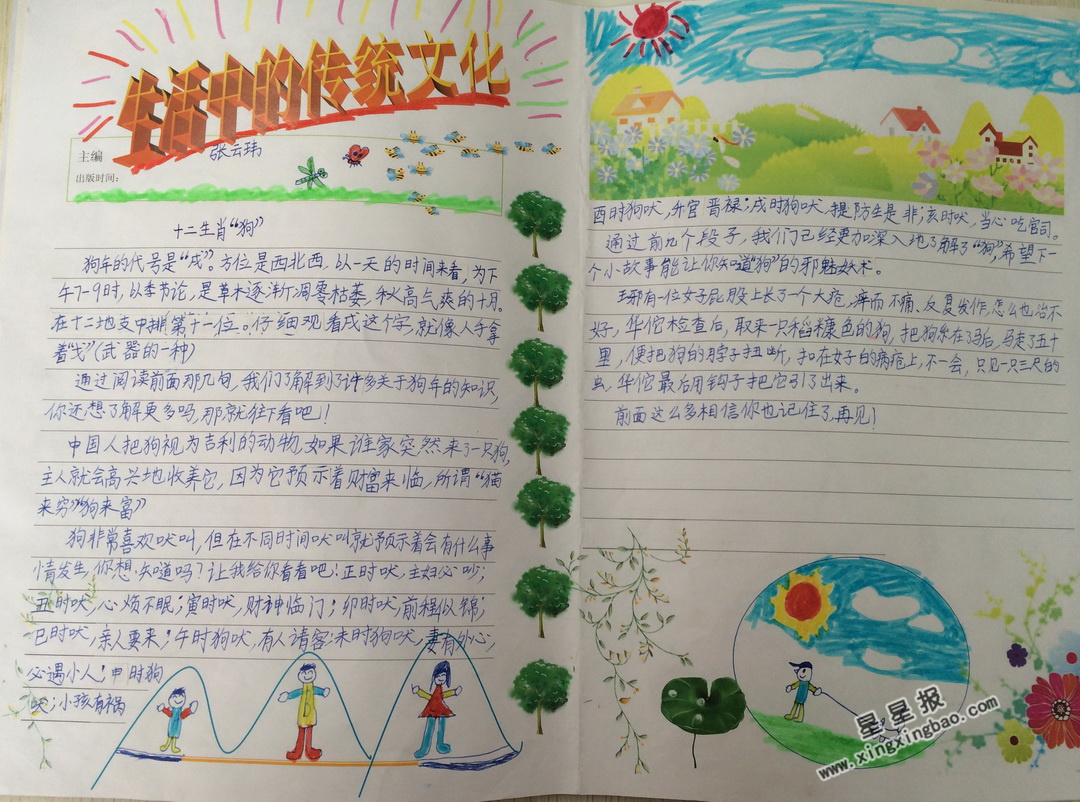 生活中的传统文化
主编 张云玮
出版时间:
十二生肖“狗”
狗年的代号是“戌”。方位是西北西,以一天的时间来看,为下
午7-9时,以季节论,是草木逐渐凋零枯萎,秋高气爽的十月。
在十二地支中排第十一位。仔细观看戌这个字,就像人手拿
着“戈”(武器的一种)
通过阅读前面那几句,我们了解到了许多关于狗年的知识,
你还想了解更多吗,那就往下看吧!
中国人把狗视为吉利的动物,如果谁家突然来了一只狗,
主人就会高兴地收养它,因为它预示着财富来临,所谓“猫
来穷”“狗来富”
狗非常喜欢吠叫,但在不同时间吠叫就预示着会有什么事
情发生,你想知道吗?让我给你看看吧!正时吠,主妇必吵;
丑时吠,心烦不眠;寅时吠,财神临门;卯时吠,前程似锦;
巳时吠,亲人要来;午时狗吠,有人请客;未时狗吠,妻有外心,
必遇小人;申时狗
吠;小孩有祸
酉时狗吠,升官晋禄;戌时狗吠,提防生是非;亥时吠,当心吃官司。
通过前几个段子,我们已经更加深入地了解了“狗”,希望下一
个小故事能让你知道“狗”的邪魅妖术。
琊有一位女子屁股上长了一个大疮,痒而不痛、反复发作,怎么也治不
好,华佗检查后,取来一只稻糠色的狗,把狗系在了马后,马走了五十
里,便把狗的脖子扭断,扣在女子的病疮上,不一会,只见一只三尺的
虫,华佗最后用钩子把它引了出来。
前面这么多相信你也记住了,再见!
星星报
www.xingxingbao.com